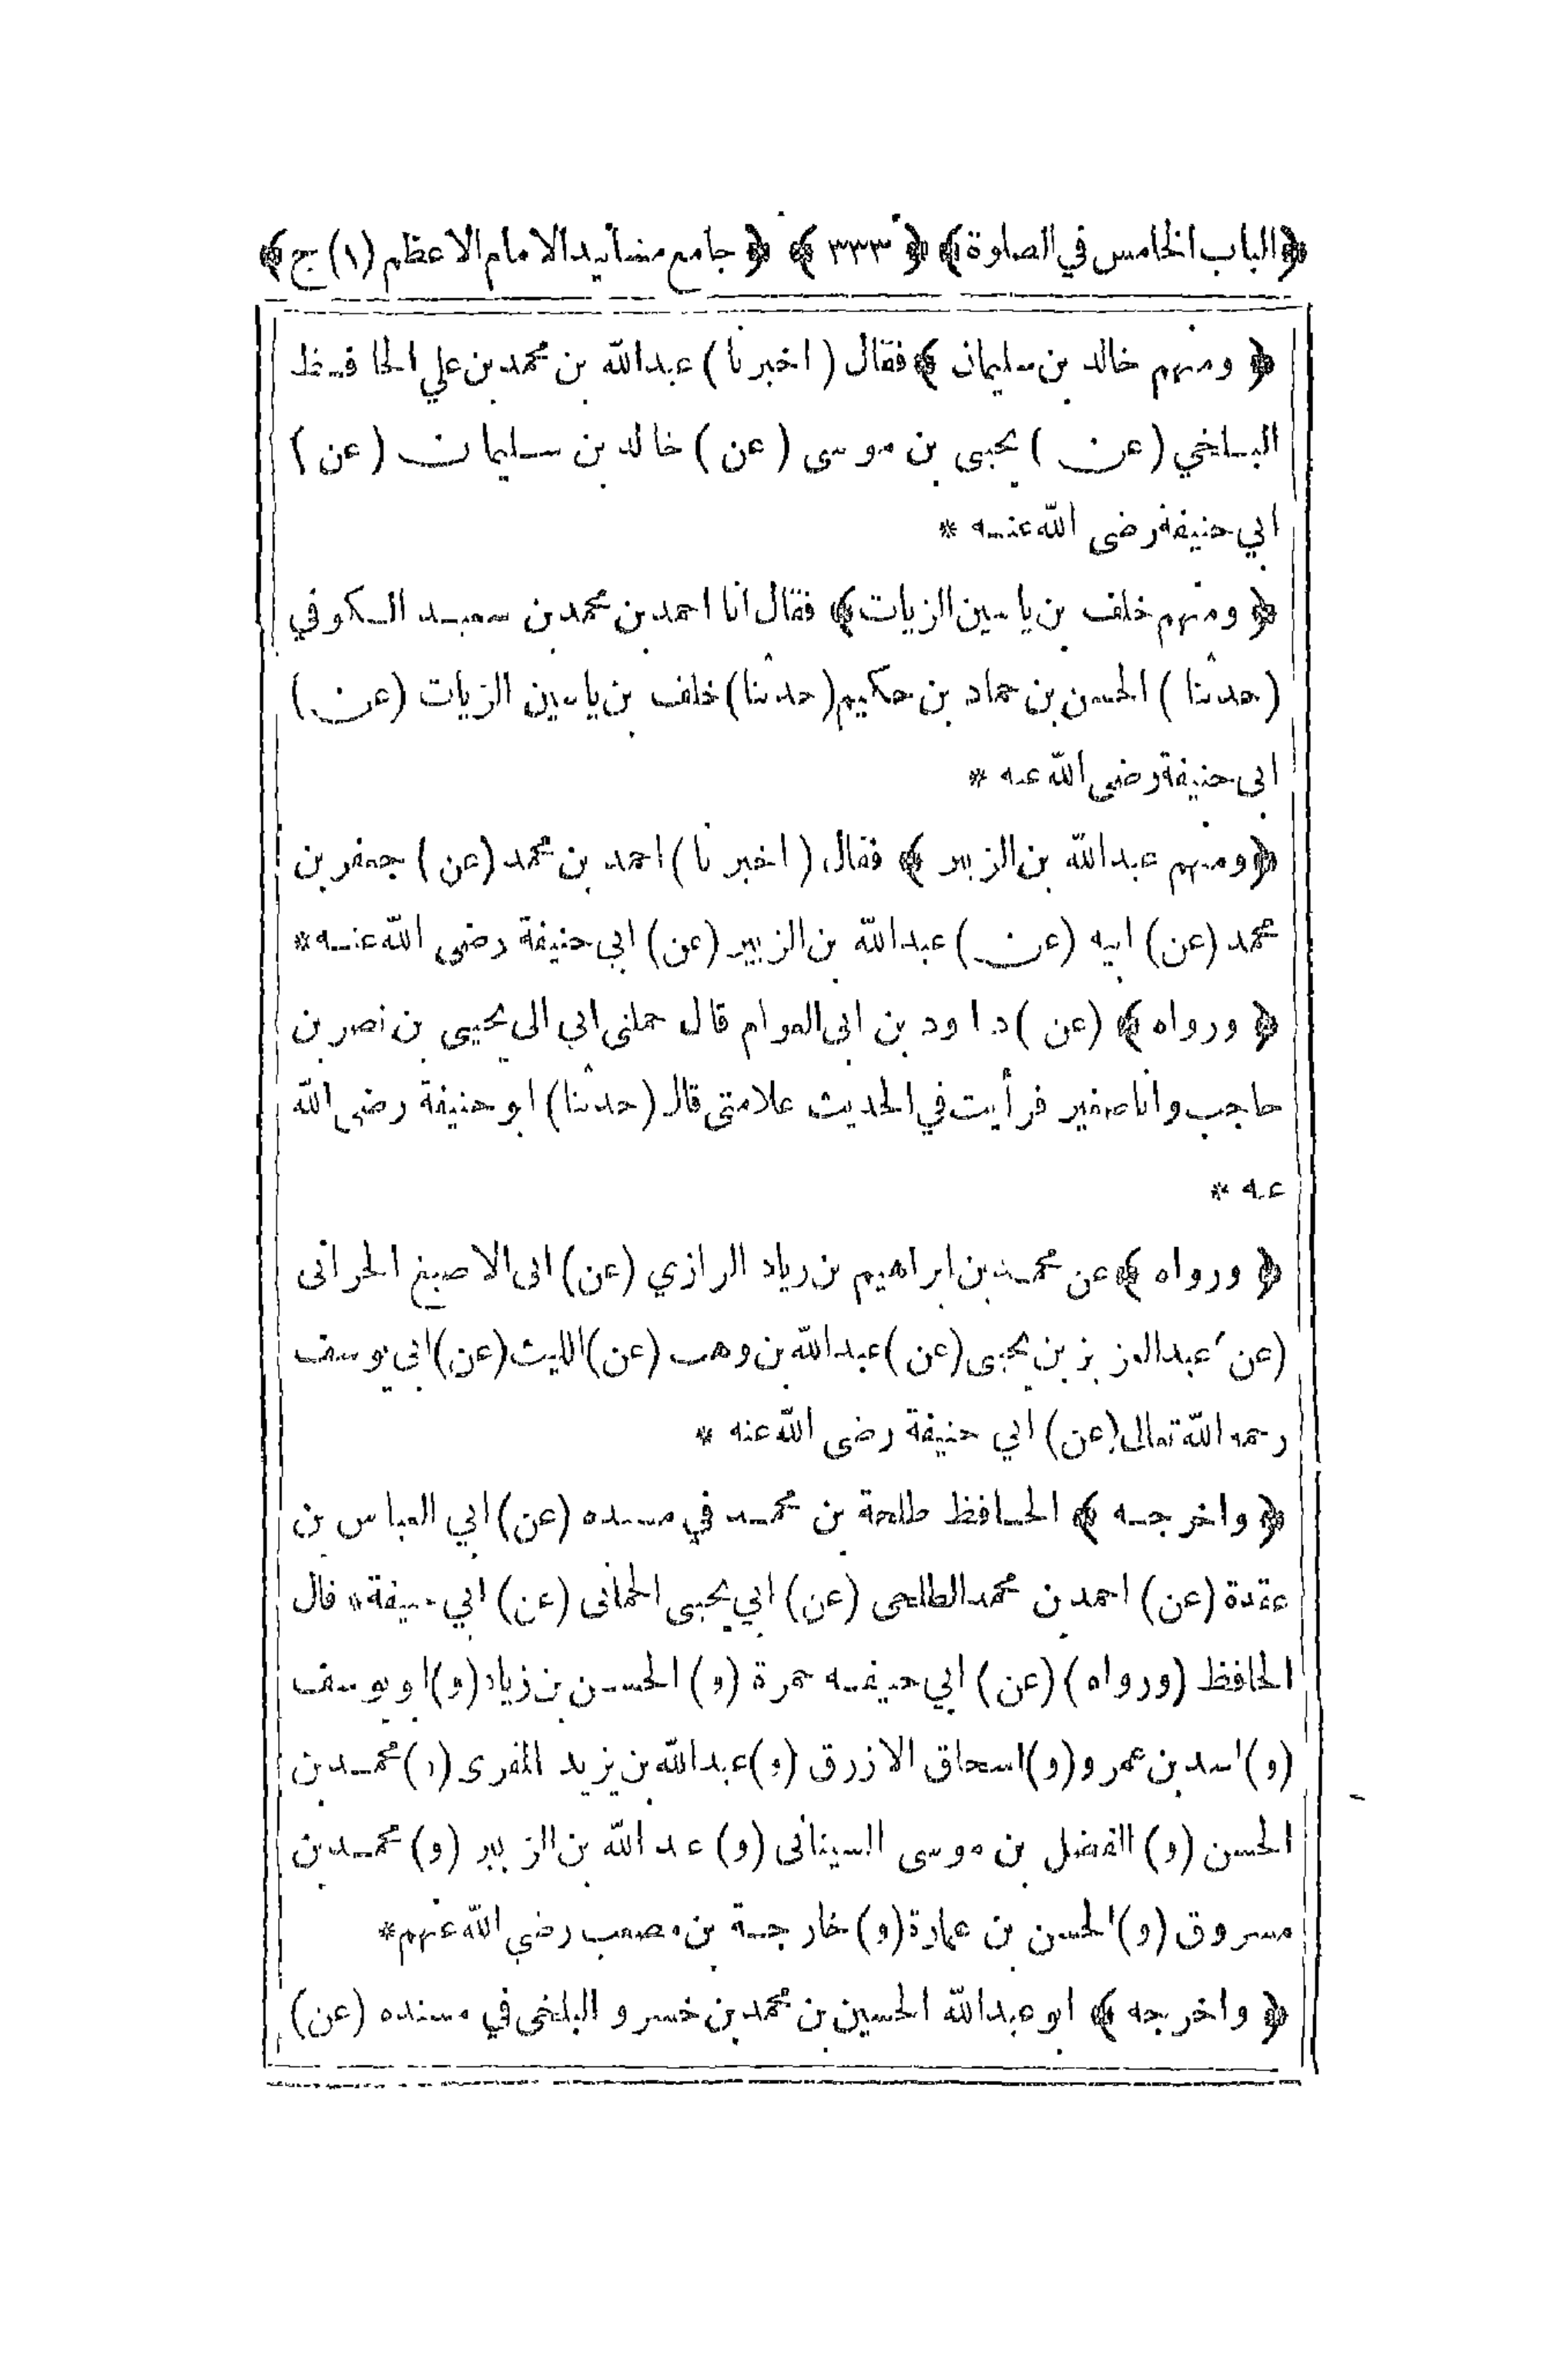 ﴿الباب الخامس في الصلوة﴾ ﴿ ٣٣٣ ﴾ ﴿ جامع مسانيد الامام الاعظم (١) ج ﴾
﴿ ومنهم خالد بن سليمان ﴾ فقال ( اخبرنا ) عبد الله بن محمد بن علي الحافظ
البلخي ( عن ) يحيى بن موسى ( عن ) خالد بن سليمان ( عن )
ابي حنيفة رضى الله عنه *
﴿ ومنهم خلف بن ياسين الزيات ﴾ فقال انا احمد بن محمد بن سعيد الكوفي
( حدثنا ) الحسن بن حماد بن حكيم ( حدثنا ) خلف بن ياسين الزيات ( عن )
ابى حنيفة رضى الله عنه *
﴿ ومنهم عبد الله بن الزبير ﴾ فقال ( اخبرنا ) احمد بن محمد ( عن ) جعفر بن
محمد ( عن ) ابيه ( عن ) عبد الله بن الزبير ( عن ) ابي حنيفة رضى الله عنه *
﴿ ورواه ﴾ ( عن ) داود بن ابى العوام قال حملنى ابي الى يحيى بن نصر بن
حاجب وانا صغير فرأيت في الحديث علامتى قال ( حدثنا ) ابو حنيفة رضى الله
عنه *
﴿ ورواه ﴾ عن محمد بن ابراهيم بن زياد الرازي ( عن ) ابى الاصبغ الحرانى
( عن ) عبد العزيز بن يحيى ( عن ) عبد الله بن وهب ( عن ) الليث ( عن ) ابى يوسف
رحمه الله تعالى ( عن ) ابي حنيفة رضى الله عنه *
﴿ واخرجه ﴾ الحافظ طلحة بن محمد في مسنده ( عن ) ابي العباس بن
عقدة ( عن ) احمد بن محمد الطلحى ( عن ) ابي يحيى الحمانى ( عن ) ابي حنيفة * قال
الحافظ ( ورواه ) ( عن ) ابي حنيفه حمزة ( و ) الحسن بن زياد ( و ) ابو يوسف
( و ) اسد بن عمرو ( و ) اسحاق الازرق ( و ) عبد الله بن يزيد المقرى ( و ) محمد بن
الحسن ( و ) الفضل بن موسى السينانى ( و ) عبد الله بن الزبير ( و ) محمد بن
مسروق ( و ) الحسن بن عمارة ( و ) خارجة بن مصعب رضي الله عنهم *
﴿ واخرجه ﴾ ابو عبد الله الحسين بن محمد بن خسرو البلخى في مسنده ( عن )